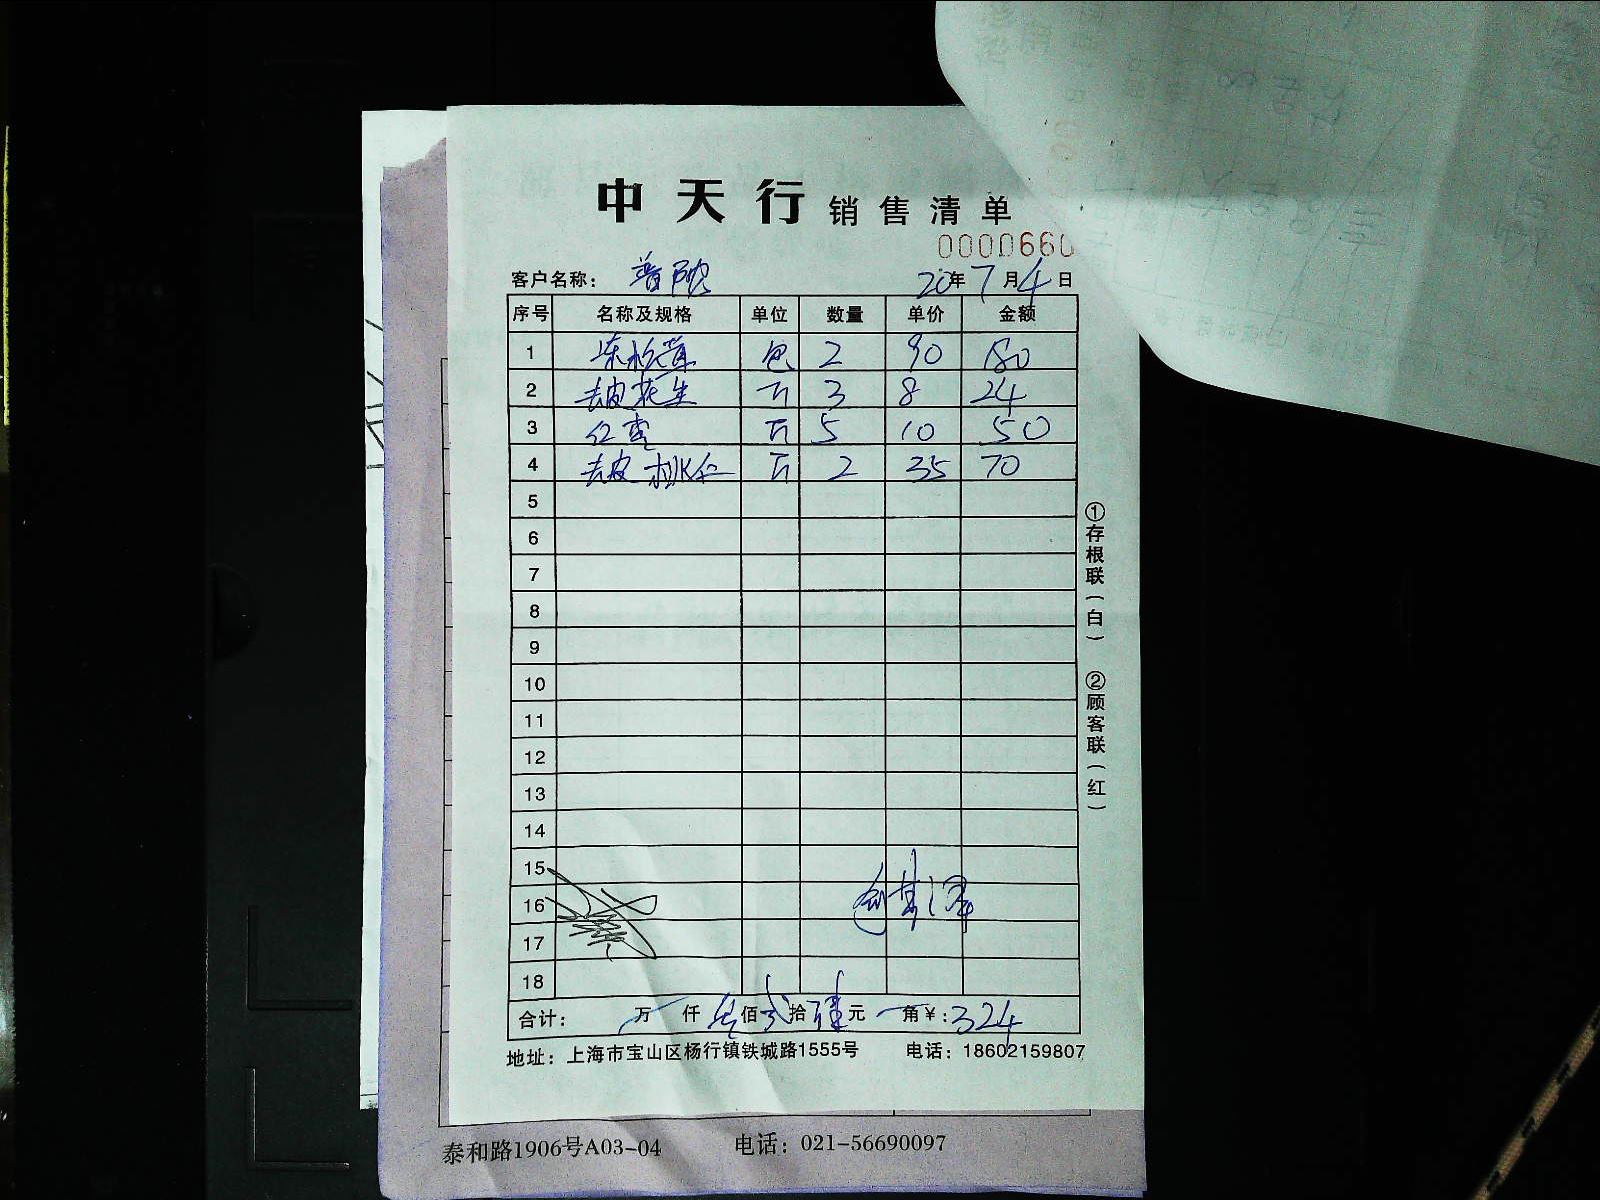 中天行 销售清单
0000660
客户名称： 普陀 20年7月4日
序号 名称及规格 单位 数量 单价 金额
1 冻松茸 包 2 90 180
2 去皮花生 斤 3 8 24
3 红枣 斤 5 10 50
4 去皮桃仁 斤 2 35 70
5
6
7
8
9
10
11
12
13
14
15
16
17
18
合计： 万 仟 叁佰 贰拾 肆元 角¥：324
地址：上海市宝山区杨行镇铁城路1555号 电话：18602159807
①存根联（白） ②顾客联（红）
泰和路1906号A03-04 电话：021-56690097